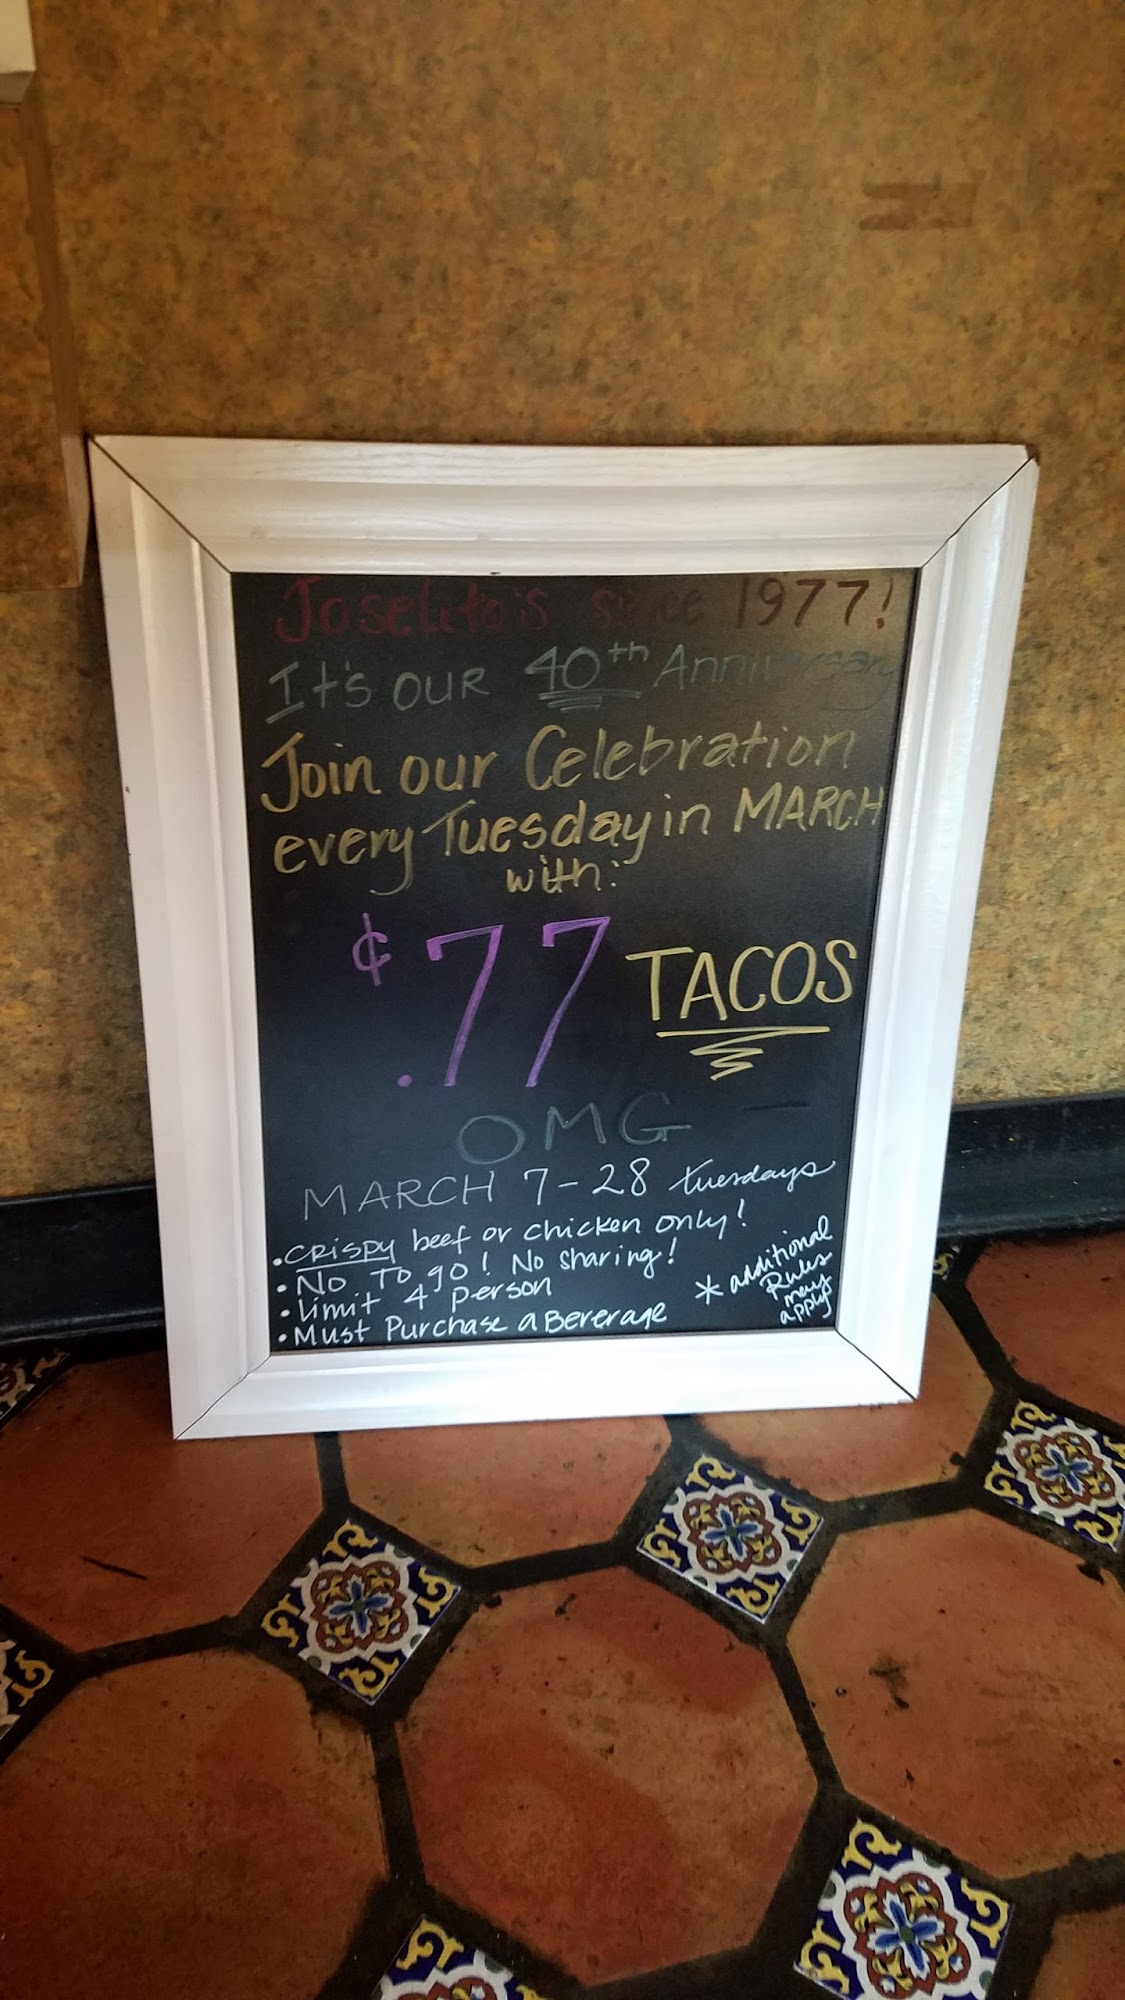 Joselito's since 1977!
It's our 40th Anniversary
Join our Celebration
every Tuesday in MARCH
with:
¢.77 TACOS
OMG
MARCH 7-28 tuesdays
• crispy beef or chicken only!
• No To go! No sharing!
• Limit 4 person
• Must Purchase a Beverage
* additional
Rules
may
apply